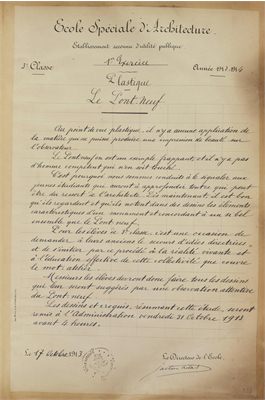 Ecole Spéciale d'Architecture.
Etablissement reconnu d'utilité publique.
3e Classe
1er Exercice
Année 1913-1914
Plastique
Le Pont neuf
Au point de vue plastique, il n'y a aucune application de
la matière qui ne puisse produire une impression de beauté sur
l'observateur.
Le Pont neuf en est un exemple frappant et il n'y a pas
d'homme compétent qui n'en soit touché.
C'est pourquoi nous sommes conduits à le signaler aux
jeunes étudiants que auront à approfondir toutes que peut
être du ressort de l'architecte. Dès maintenant, il est bon
qu'ils regardent et qu'ils notent dans des dessins les éléments
caractéristiques d'un monument et concordant à un si bel
ensemble que le Pont neuf.
Pour les élèves de 1e classe, c'est une occasion de
demander à leurs anciens le secours d'idées directrices,
et de s'initier par ce procédé à la réalité vivante et
à l'éducation effective de cette collectivité que couvre
le mot atelier.
Messieurs les élèves devront donc faire tous les dessins
qui leur seront suggérés par une observation attentive
du Pont neuf.
Les dessins et croquis, résumant cette étude, seront
remis à l'Administration vendredi 31 Octobre 1913
avant 4 heures.
Le 17 Octobre 1913
Le Directeur de l'Ecole,